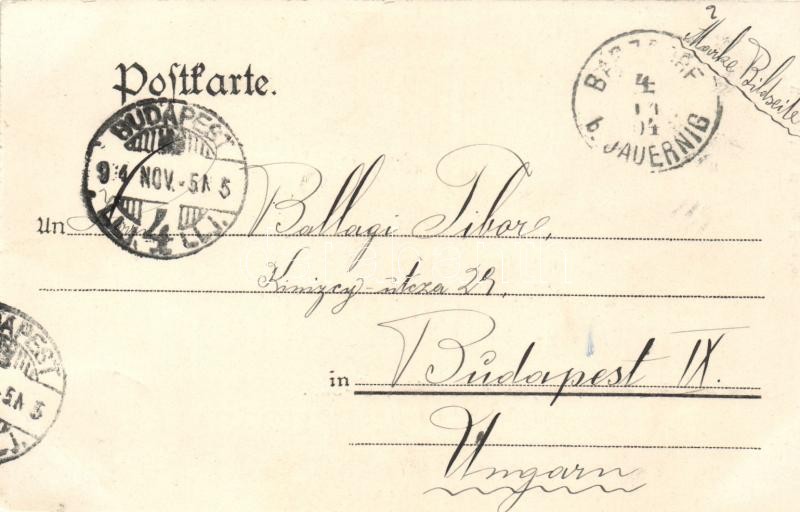 Marke Bildseite
Postkarte.
BUDAPEST
904 NOV. -5N 5
4
b. JAUERNIG
4
04
An Ballagi Tibor,
Kinizsy-utcza 29,
in Budapest IX.
Ungarn
BUDAPEST
-5N 5